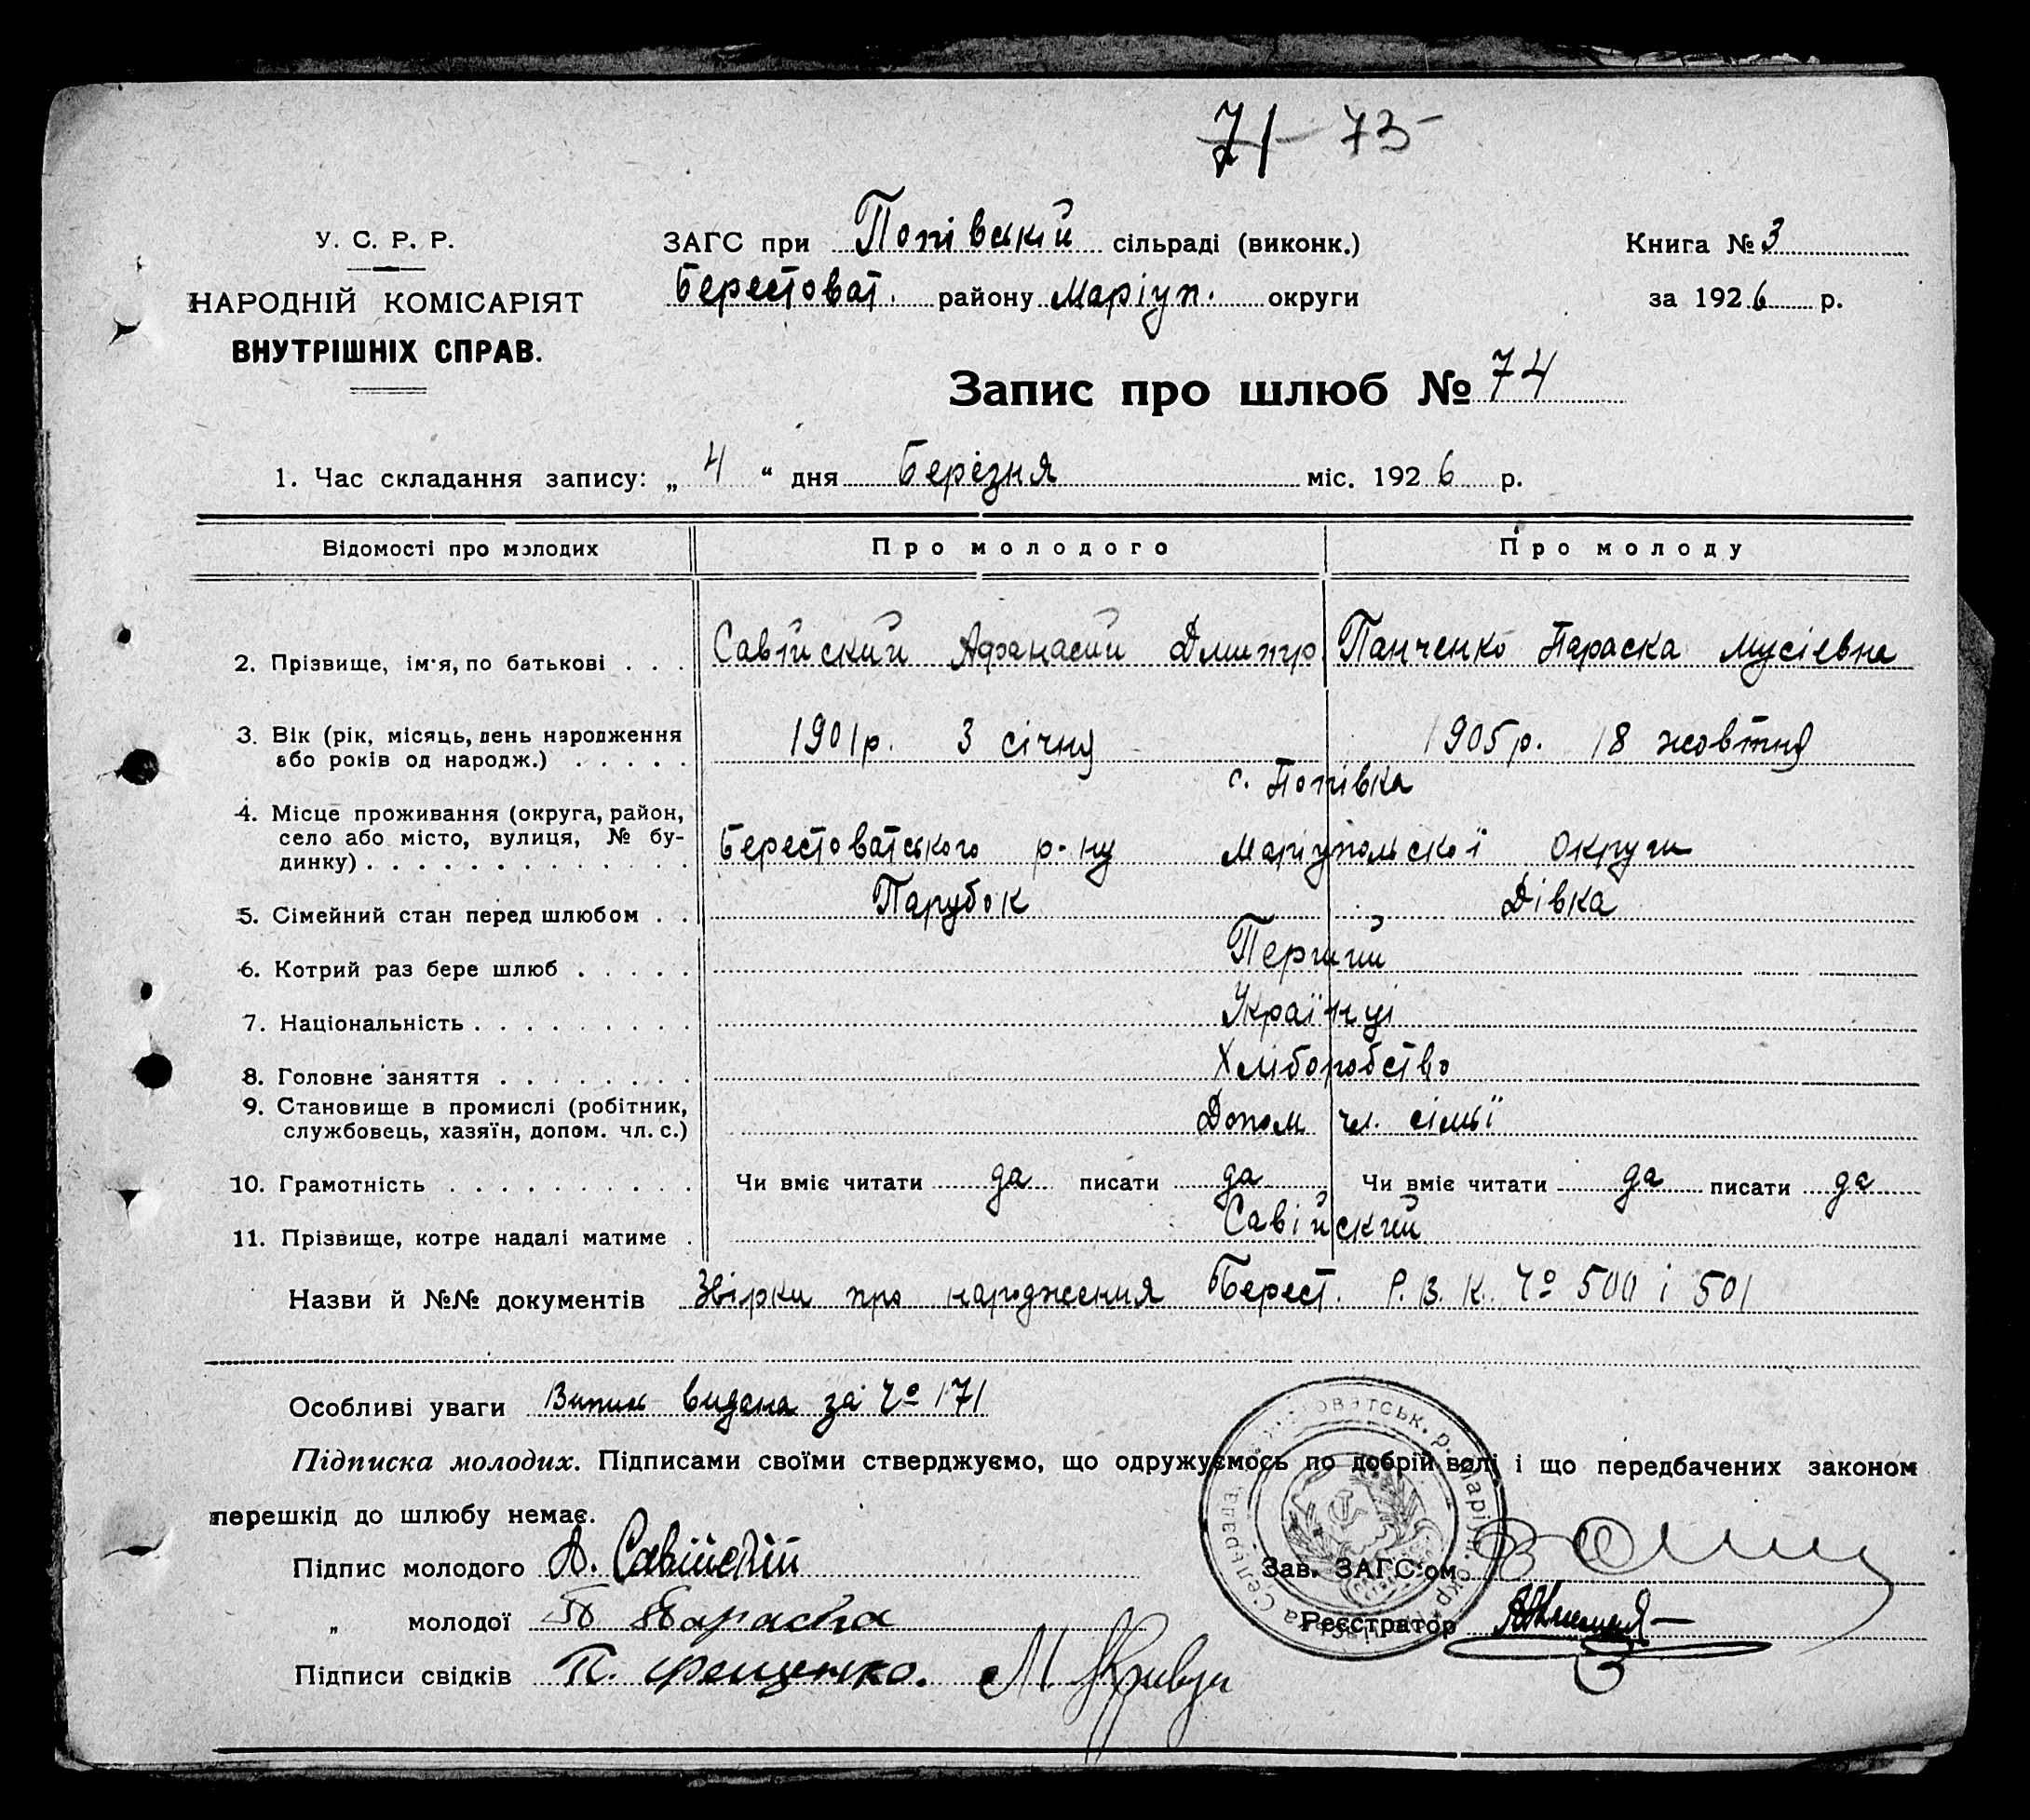 71 73
У. С. Р. Р.
ЗАГС при Попівській сільраді (виконк.)
Книга № 3
НАРОДНІЙ КОМІСАРІЯТ
Берестоват. району Маріуп. округи
за 1926 р.
ВНУТРІШНІХ СПРАВ.
Запис про шлюб № 74
1. Час складання запису: „ 4 “ дня Березня міс. 1926 р.
Відомості про молодих Про молодого Про молоду
2. Прізвище, ім'я, по батькові . . . Савійский Афанасий Дмитр Панченко Параска Мусіевна
3. Вік (рік, місяць, день народження
або років од народж.) . . . . . 1901р. 3 січня 1905р. 18 жовтня
с. Попівка
4. Місце проживання (округа, район,
село або місто, вулиця, № бу-
динку) . . . . . . . . . . . . . Берестоватського р-ну Маріупольскої Округи
5. Сімейний стан перед шлюбом . . Парубок Дівка
6. Котрий раз бере шлюб . . . . . Перший
7. Національність . . . . . . . . . Українці
8. Головне заняття . . . . . . . . Хліборобство
9. Становище в промислі (робітник,
службовець, хазяїн, допом. чл. с.) Допом чл. сімьї
10. Грамотність . . . . . . . . . . Чи вміє читати да писати да Чи вміє читати да писати да
11. Прізвище, котре надалі матиме . Савійский
Назви й №№ документів Звірки про народження Берест. Р.В.К. № 500 і 501
Особливі уваги Випис видана за № 171
Підписка молодих. Підписами своїми стверджуємо, що одружуємось по добрій волі і що передбачених законом
перешкід до шлюбу немає.
Підпис молодого А. Савійскій
Зав. ЗАГС'ом
„ молодої П Параска
Реєстратор
Підписи свідків П. Фещенко. М.